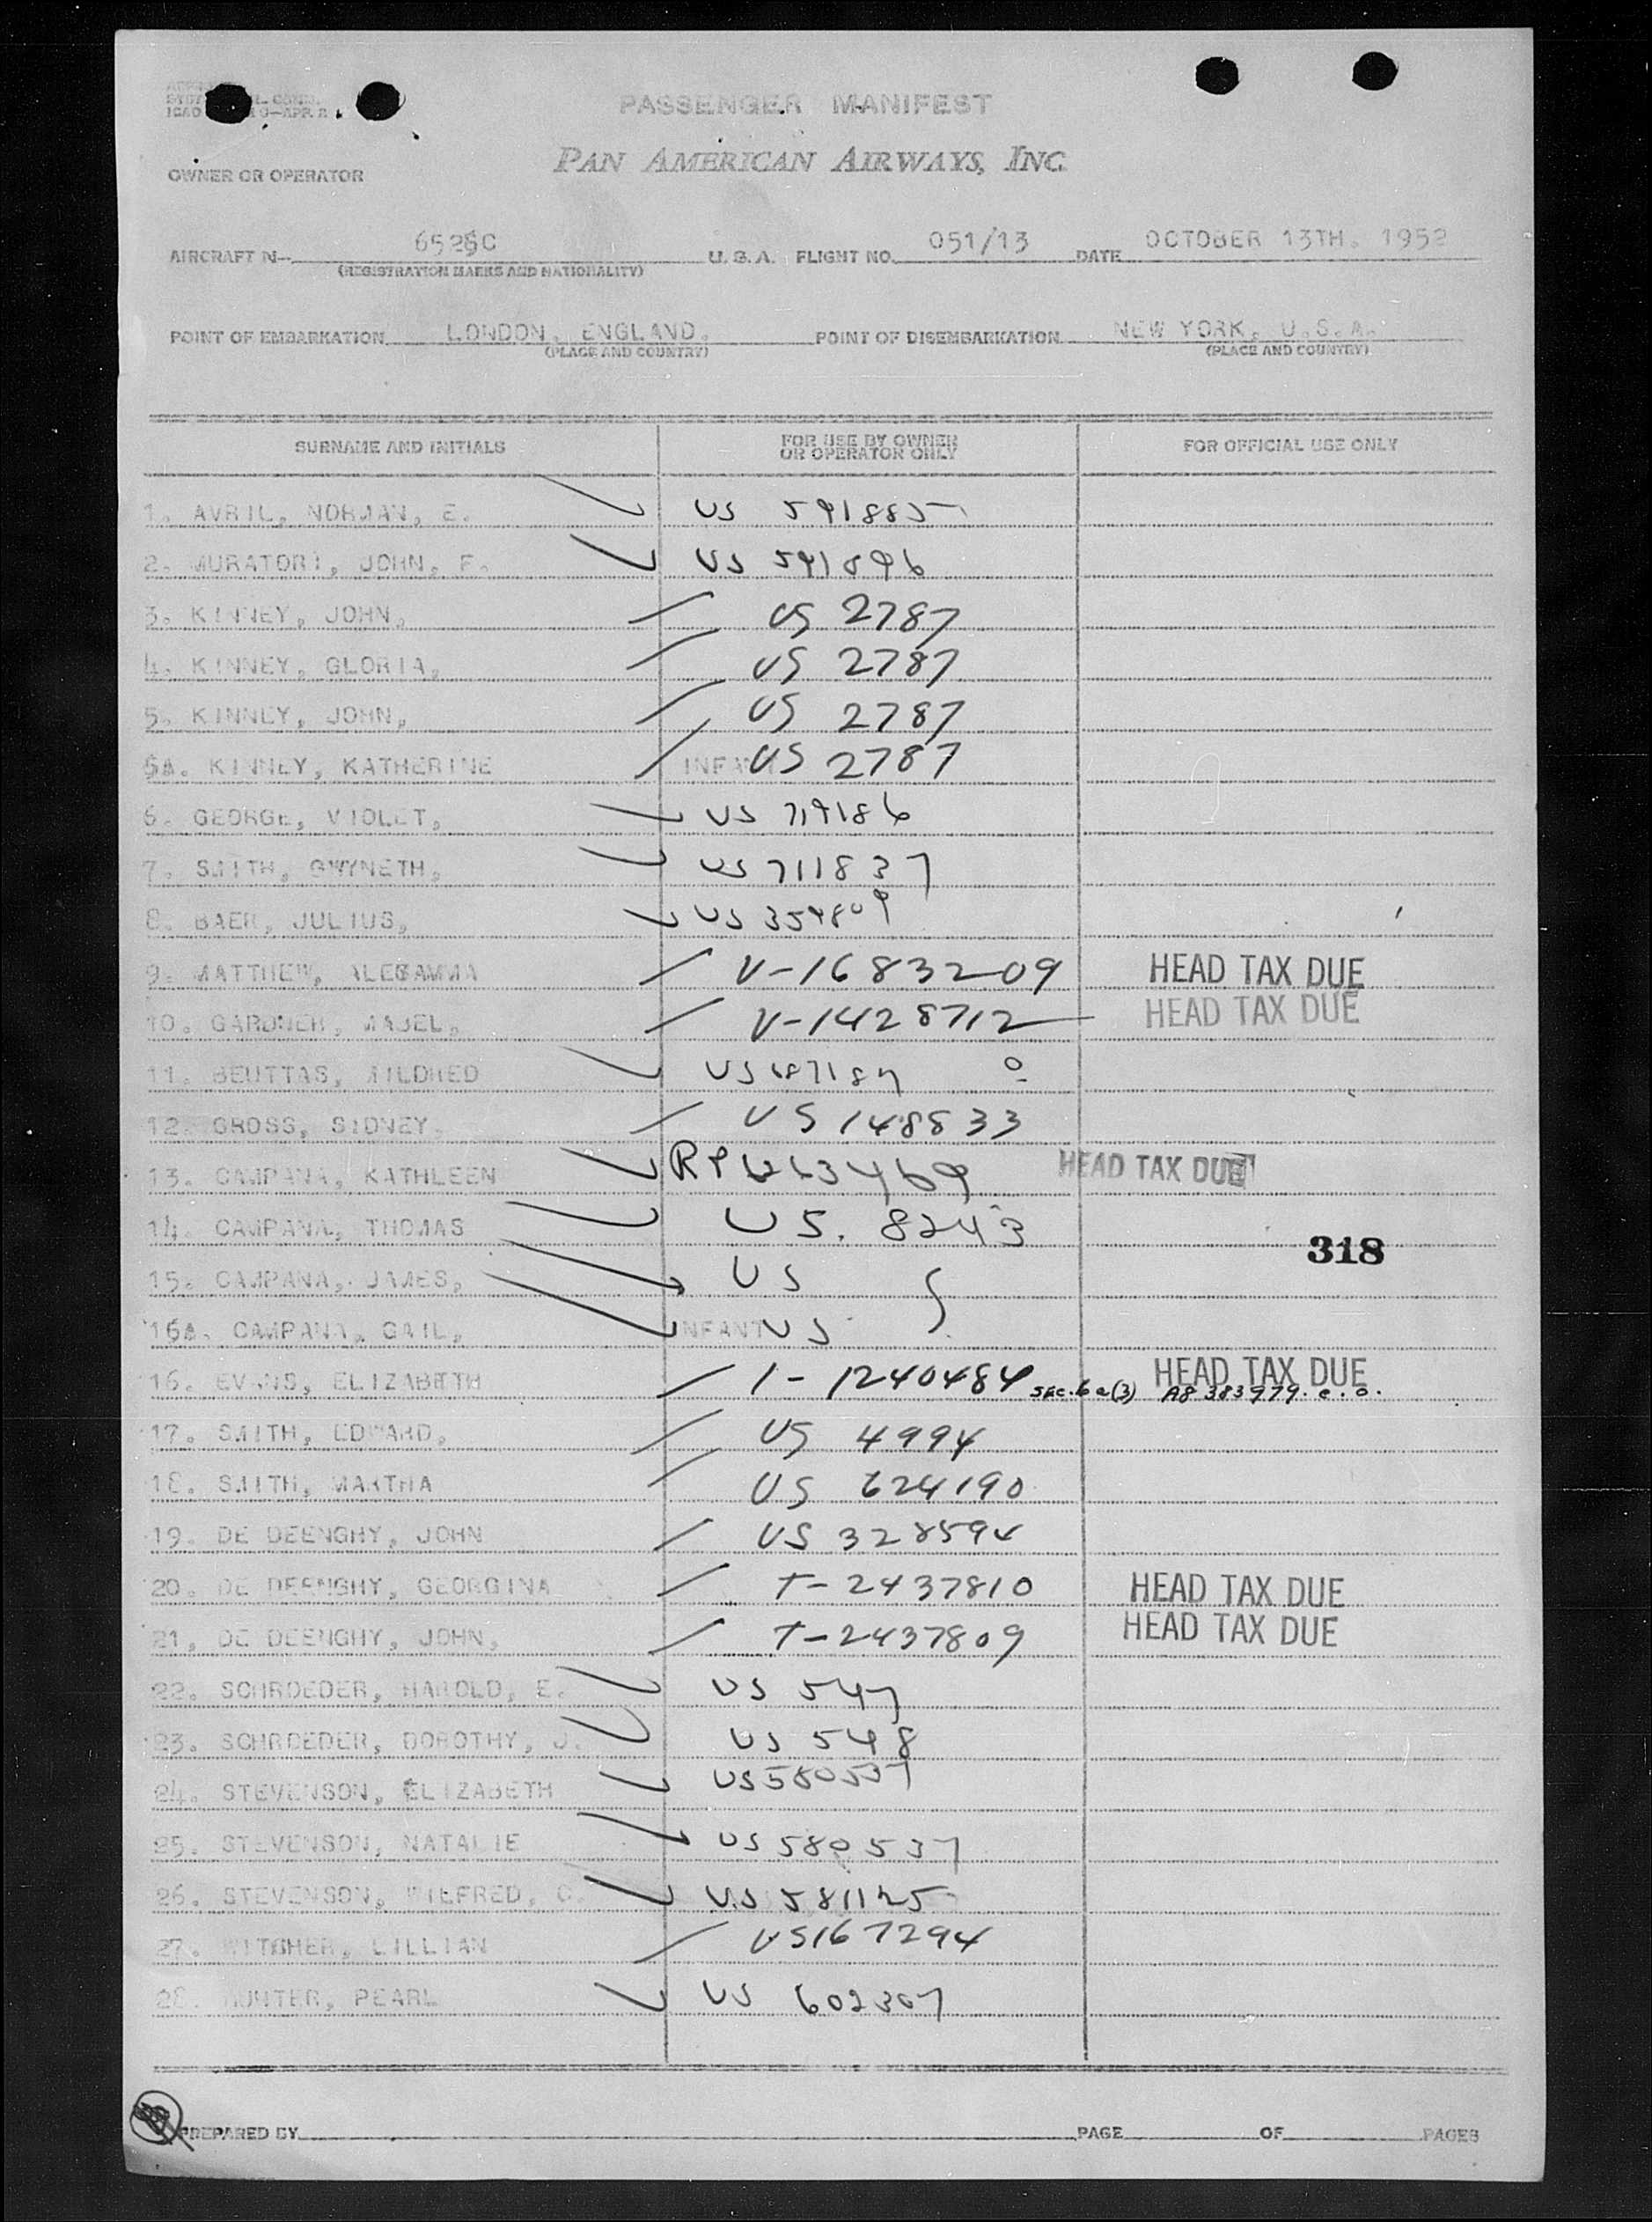 PASSENGER MANIFEST
PAN AMERICAN AIRWAYS, INC.
OWNER OR OPERATOR
AIRCRAFT N- C U.S.A. FLIGHT NO. 051/13 DATE OCTOBER 13TH. 1952
(REGISTRATION MARKS AND NATIONALITY)
POINT OF EMBARKATION LONDON, ENGLAND. POINT OF DISEMBARKATION NEW YORK, U.S.A.
(PLACE AND COUNTRY) (PLACE AND COUNTRY)
SURNAME AND INITIALS FOR USE BY OWNER OR OPERATOR ONLY FOR OFFICIAL USE ONLY
1. AVRIL, NORMAN, E. US 591885
2. MURATORI, JOHN, F. US 591896
3. KINNEY, JOHN, US 2787
4. KINNEY, GLORIA, US 2787
5. KINNEY, JOHN, US 2787
5A. KINNEY, KATHERINE INFANT US 2787
6. GEORGE, VIOLET, US 719186
7. SMITH, GWYNETH, US 711837
8. BAER, JULIUS, US 354809
9. MATTHEW, V-1683209 HEAD TAX DUE
10. GARDNER, MABEL, V-1428712 HEAD TAX DUE
11. BEUTTAS, MILDRED US
12. GROSS, SIDNEY. US 148533
13. CAMPANA, KATHLEEN HEAD TAX DUE
14. CAMPANA, THOMAS US. 8243
318
15. CAMPANA, JAMES, US
15A. CAMPANA, GAIL, INFANT US
16. EVANS, ELIZABETH I-1240484 HEAD TAX DUE
Sec. 6a(3) A8 383979. e.o.
17. SMITH, EDWARD, US 4994
18. SMITH, MARTHA US 624190
19. DE DEENGHY, JOHN US 328594
20. DE DEENGHY, GEORGINA T-2437810 HEAD TAX DUE
21. DE DEENGHY, JOHN, T-2437809 HEAD TAX DUE
22. SCHROEDER, HAROLD, E. US 547
23. SCHROEDER, DOROTHY, J. US 548
24. STEVENSON, ELIZABETH US 580537
25. STEVENSON, NATALIE US 580537
26. STEVENSON, WILFRED, C. US 581125
27. WITCHER, LILLIAN US 167294
28. HUNTER, PEARL US 602307
PREPARED BY PAGE OF PAGES